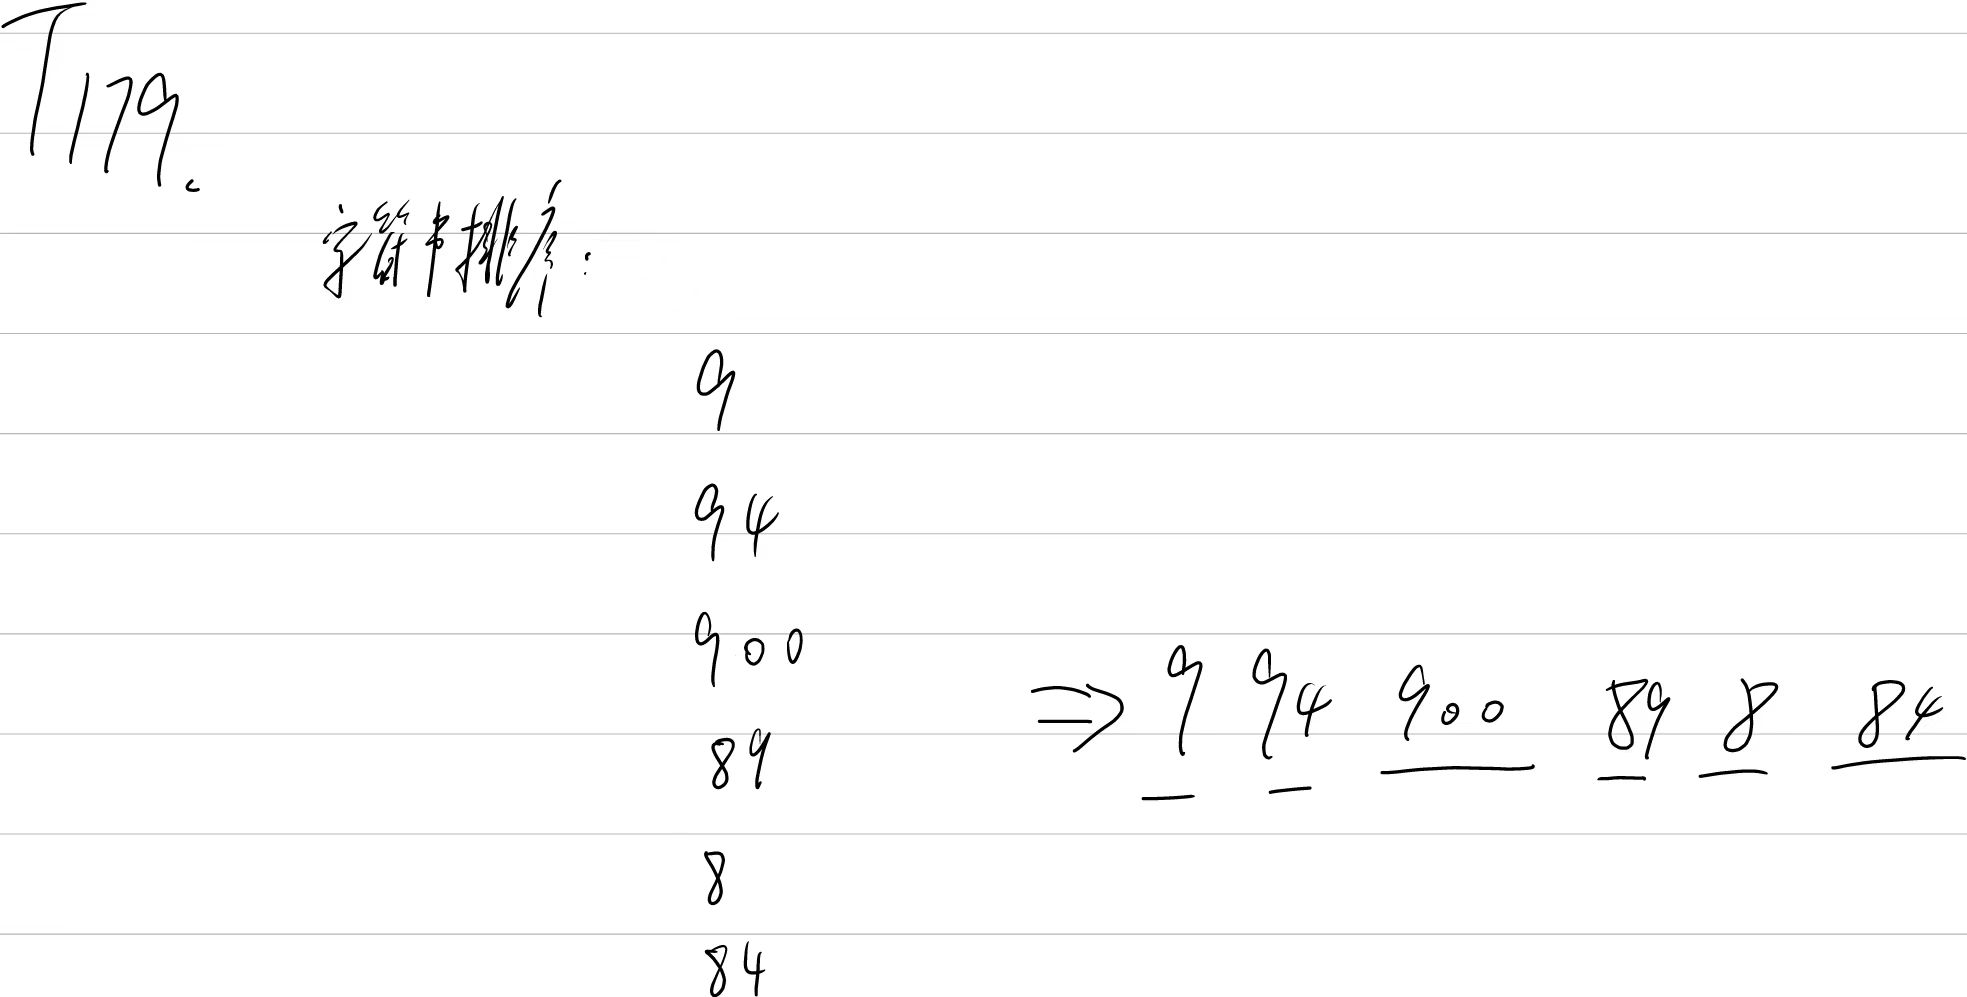 T179.
字符串排序:
9
94
900
⇒ 9 94 900 89 8 84
89
8
84